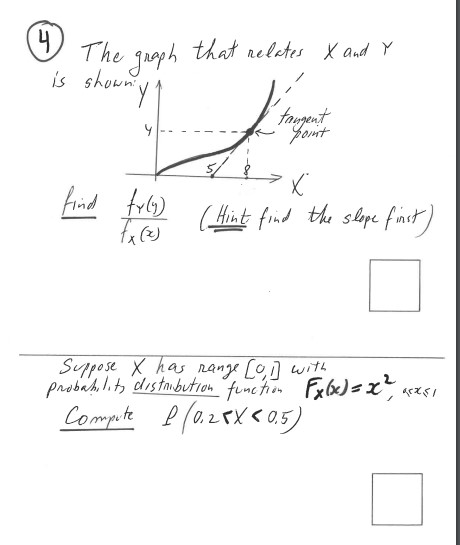 4 The graph that relates X and Y
is shown:
Y
4
tangent
point
5 8
X
find fY(y) / fX(x) (Hint find the slope first)
Suppose X has range [0,1] with
probability distribution function FX(x) = x², 0≤x≤1
Compute P(0.2<X<0.5)